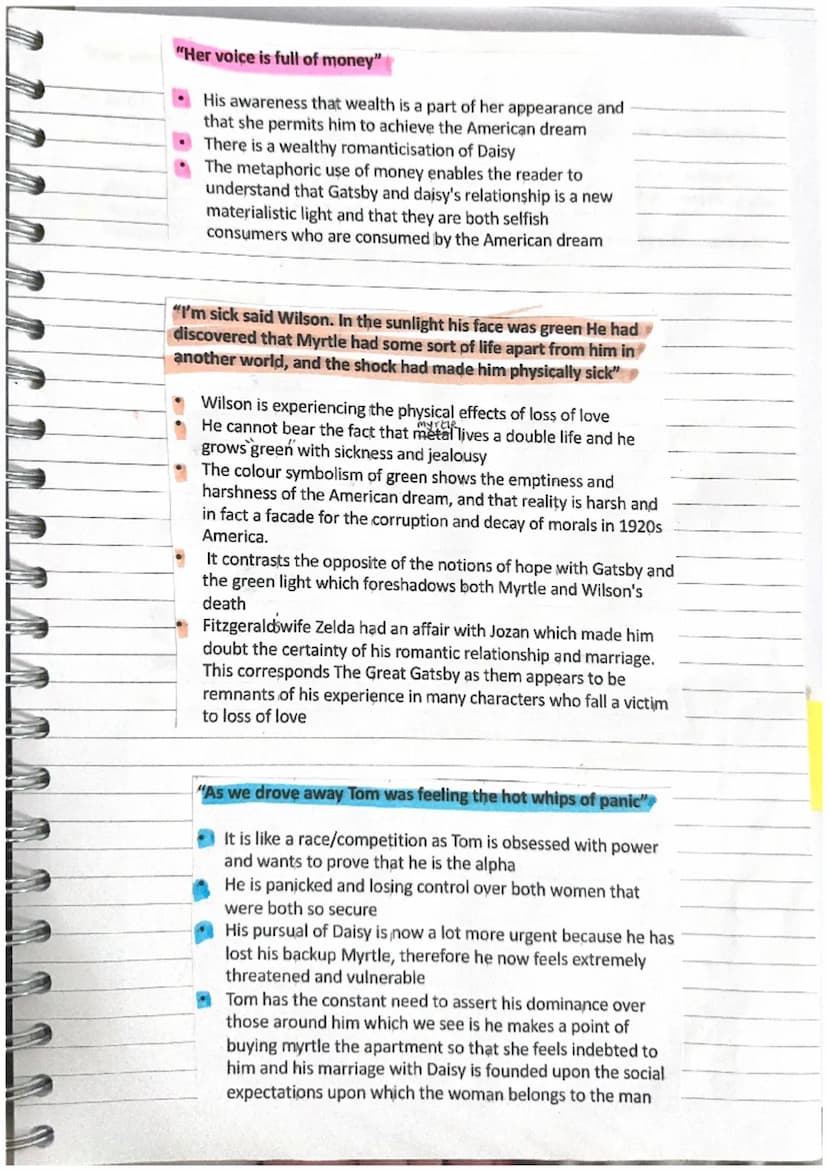 “Her voice is full of money”
• His awareness that wealth is a part of her appearance and
that she permits him to achieve the American dream
• There is a wealthy romanticisation of Daisy
• The metaphoric use of money enables the reader to
understand that Gatsby and daisy's relationship is a new
materialistic light and that they are both selfish
consumers who are consumed by the American dream
“I'm sick said Wilson. In the sunlight his face was green He had
discovered that Myrtle had some sort of life apart from him in
another world, and the shock had made him physically sick”
• Wilson is experiencing the physical effects of loss of love
myrtle
• He cannot bear the fact that metal lives a double life and he
grows "green" with sickness and jealousy
• The colour symbolism of green shows the emptiness and
harshness of the American dream, and that reality is harsh and
in fact a facade for the corruption and decay of morals in 1920s
America.
• It contrasts the opposite of the notions of hope with Gatsby and
the green light which foreshadows both Myrtle and Wilson's
death
• Fitzgerald's wife Zelda had an affair with Jozan which made him
doubt the certainty of his romantic relationship and marriage.
This corresponds The Great Gatsby as them appears to be
remnants of his experience in many characters who fall a victim
to loss of love
“As we drove away Tom was feeling the hot whips of panic”
• It is like a race/competition as Tom is obsessed with power
and wants to prove that he is the alpha
• He is panicked and losing control over both women that
were both so secure
• His pursual of Daisy is now a lot more urgent because he has
lost his backup Myrtle, therefore he now feels extremely
threatened and vulnerable
• Tom has the constant need to assert his dominance over
those around him which we see is he makes a point of
buying myrtle the apartment so that she feels indebted to
him and his marriage with Daisy is founded upon the social
expectations upon which the woman belongs to the man